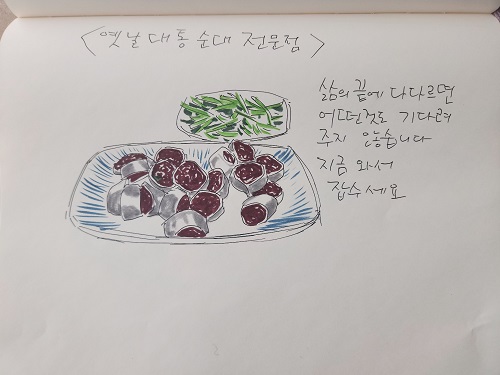 <옛날 대통 순대 전문점>
삶의 끝에 다다르면
어떤것도 기다려
주지 않습니다
지금 와서
잡수세요